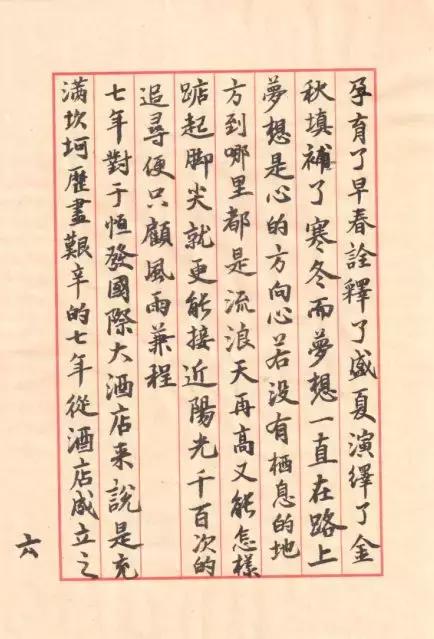 孕育了早春詮釋了盛夏演繹了金
秋填補了寒冬而夢想一直在路上
夢想是心的方向心若没有栖息的地
方到哪里都是流浪天再高又能怎樣
踮起脚尖就更能接近陽光千百次的
追尋便只顧風雨兼程
七年對于恒發國際大酒店来說是充
满坎坷歷盡艱辛的七年從酒店成立之
六